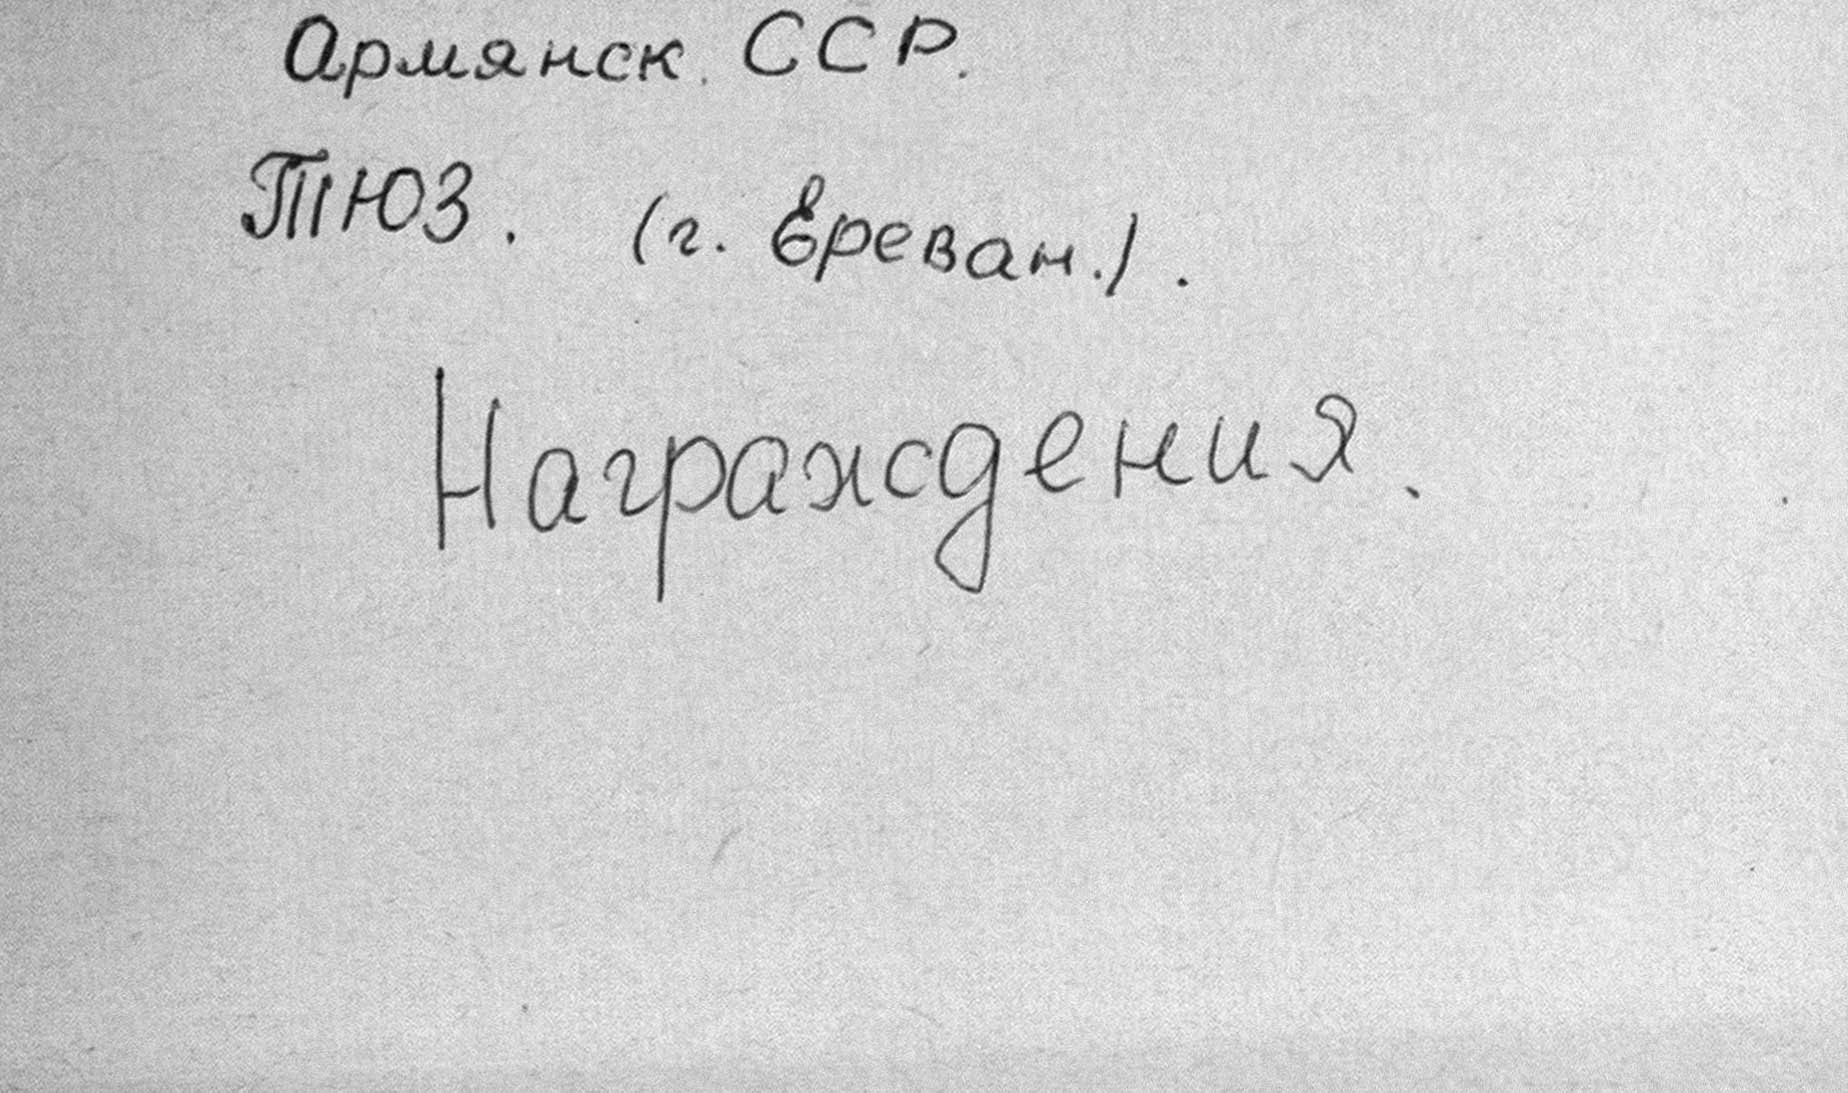 Армянск. ССР.
ТЮЗ. (г. Ереван.).
Награждения.